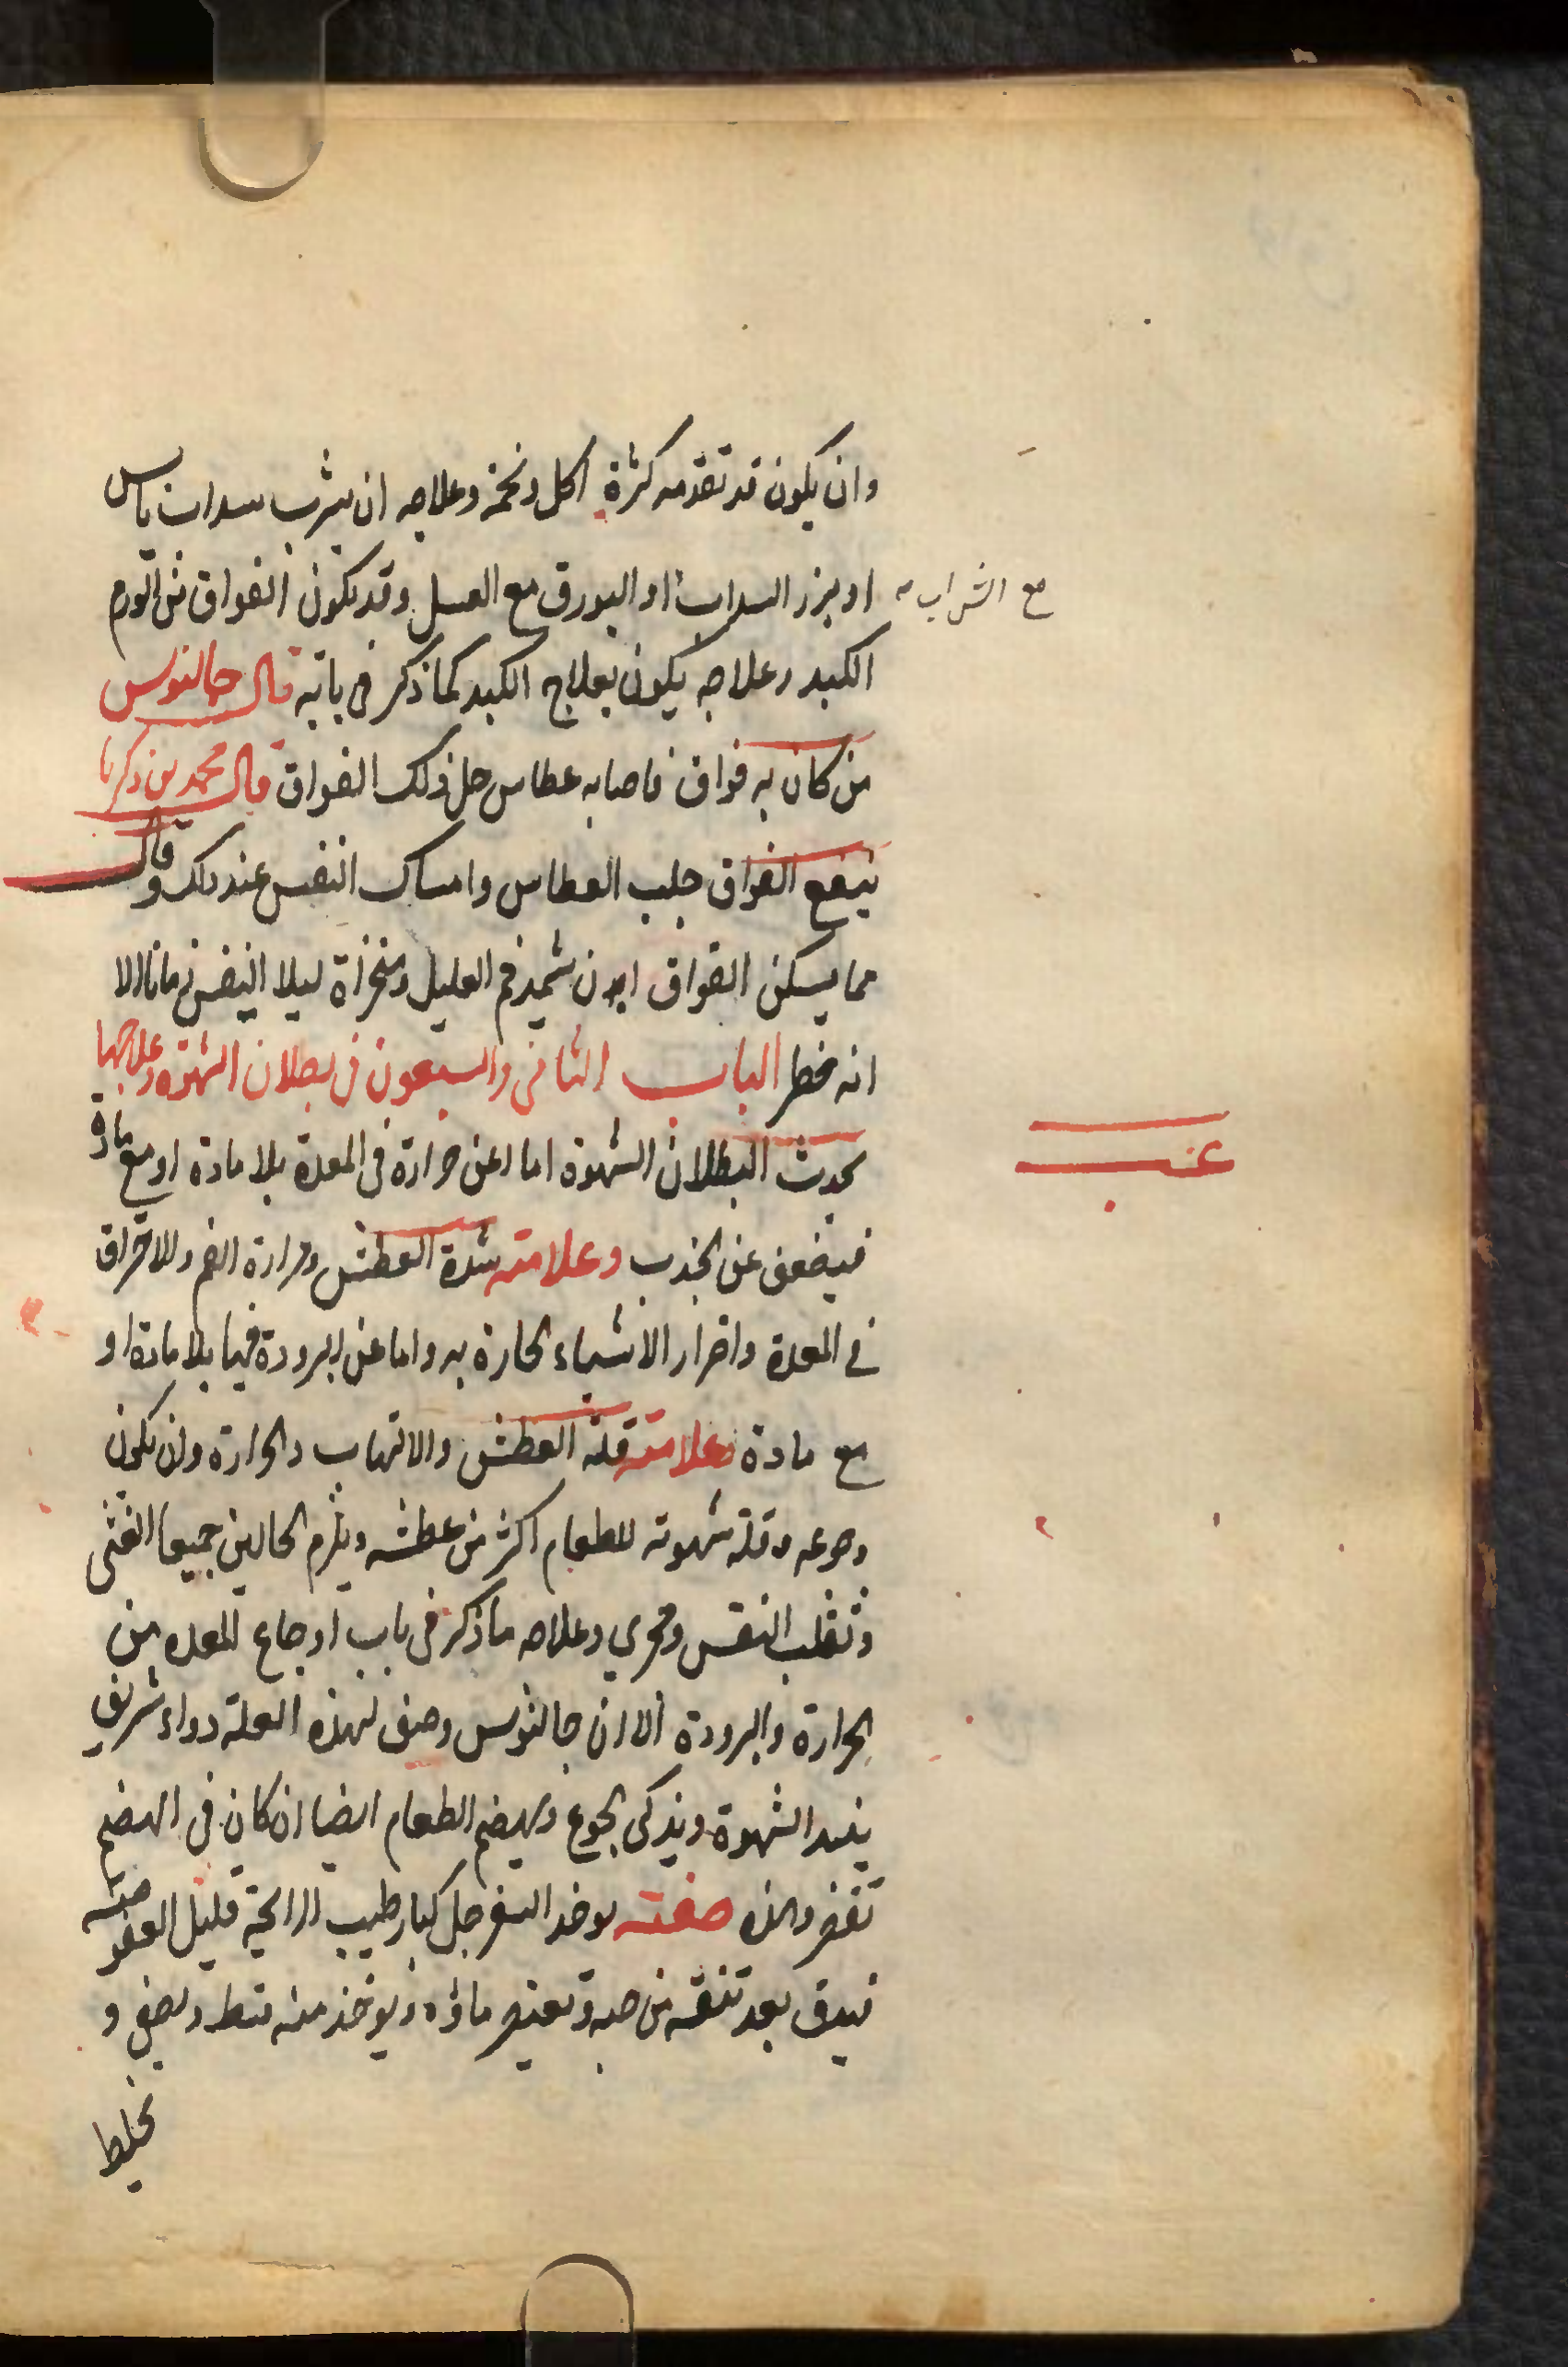 وان يكون قد تقدمه كثرة اكل وتخمة وعلاجه ان يشرب سداب يابس
مع الشراب
او بزر السداب او البورق مع العسل وقد يكون الفواق من الورم
الكبد وعلاجه يكون بعلاج الكبد كما ذكر في بابه قال جالنوس
من كان به فواق فاصابه عطاس حل ذلك الفواق قال محمد بن زكريا
ينفع الفواق جلب العطاس وامساك النفس عند ذلك وقال
مما يسكن الفواق ان فم العليل ومنخراه ليلا النفس زمانا الا
انه خطر الباب الثاني والسبعون في بطلان الشهوة وعلاجها
يحدث البطلان الشهوة اما عن حرارة في المعدة بلا مادة او مع مادة
عنب
فيضعف عن الجذب وعلامته شدة العطش ومرارة الفم والاحراق
في المعدة واضرار الاشياء الحارة به واما عن البرودة فيها بلا مادة او
مع مادة وعلامته قلة العطش والالتهاب والحرارة وان يكون
وجوعه وقلة شهوته للطعام اكثر من عطشه ويلزم الحالين جميعا الغثى
وتقلب النفس وعلاجه ما ذكر في باب اوجاع المعده من
الحرارة والبرودة الا ان جالنوس وصف لهذه العلة دواء شريف
يفيد الشهوة ويذكى الجوع ويهضم الطعام ايضا ان كان في الهضم
تقصر وهذه صفته يوخذ السفرجل كبار طيب الرايحة قليل العفوصة
فيدق بعد تنقيه من حبه ويعتصر ماؤه ويوخذ منه قسط ويصفى و
يخلط